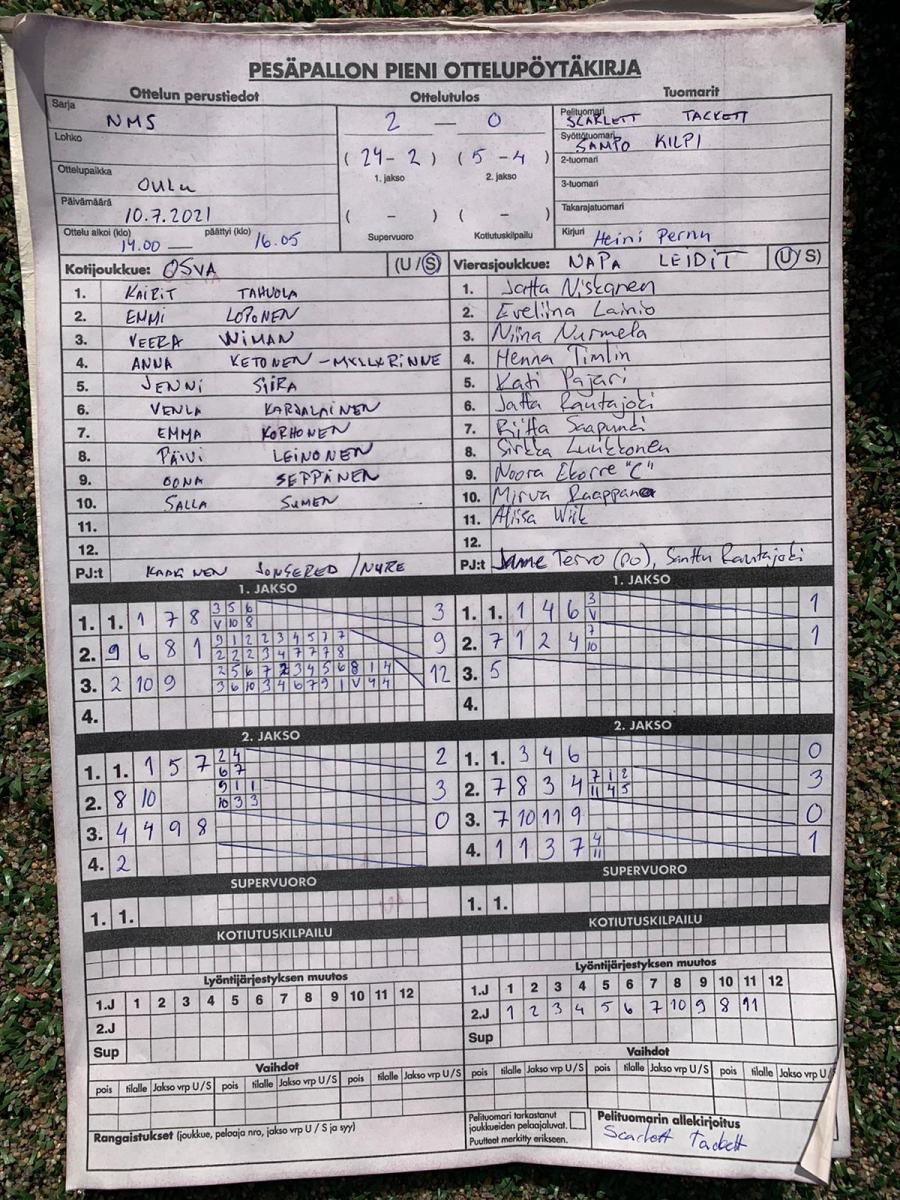 PESÄPALLON PIENI OTTELUPÖYTÄKIRJA
Ottelun perustiedot
Ottelutulos
Tuomarit
Sarja NMS
Lohko
Ottelupaikka OULU
Päivämäärä 10.7.2021
Ottelu alkoi (klo) 14.00 — päättyi (klo) 16.05
2 — 0
( 24 - 2 ) ( 5 - 4 )
1. jakso 2. jakso
( - ) ( - )
Supervuoro Kotiutuskilpailu
Pelituomari SCARLETT TACKETT
Syöttötuomari SAMPO KILPI
2-tuomari
3-tuomari
Takarajatuomari
Kirjuri Heini Pernu
Kotijoukkue: OSVA (U/S)
1. KAIRIT TAHUOLA
2. EMMI LOPONEN
3. VEERA WIMAN
4. ANNA KETONEN-MYLLYRINNE
5. JENNI SIIRA
6. VENLA KARJALAINEN
7. EMMA KORHONEN
8. PÄIVI LEINONEN
9. OONA SEPPÄNEN
10. SALLA SUMEN
11.
12.
PJ:t
Vierasjoukkue: NAPA LEIDIT (U/S)
1. Jatta Niskanen
2. Eveliina Lainio
3. Niina Nurmela
4. Henna Timlin
5. Kati Pajari
6. Jatta Rautajoki
7. Riitta Saapunki
8. Sirkka Luukkonen
9. Noora Ekorre "C"
10. Mirva
11. Aliisa Wiik
12.
PJ:t Tervo (PO), Santtu Rautajoki
1. JAKSO
1. 1. 1 7 8 3 5 6 3
V 10 8
2. 9 6 8 1 9 1 2 2 3 4 5 7 7 9
2 2 2 3 4 7 7 7 8
3. 2 10 9 2 5 6 7 2 3 4 5 6 8 1 4 12
3 6 10 3 4 6 7 9 1 V 4 4
4.
2. JAKSO
1. 1. 1 5 7 2 4 2
6 7
2. 8 10 9 1 1 3
10 3 3
3. 4 4 9 8 0
4. 2
SUPERVUORO
1. 1.
KOTIUTUSKILPAILU
Lyöntijärjestyksen muutos
1.J 1 2 3 4 5 6 7 8 9 10 11 12
2.J
Sup
Vaihdot
pois tilalle Jakso vrp U/S pois tilalle Jakso vrp U/S pois tilalle Jakso vrp U/S
Rangaistukset (joukkue, pelaaja nro, jakso vrp U / S ja syy)
1. JAKSO
1. 1. 1 4 6 3 1
V
2. 7 1 2 4 7 1
10
3. 5
4.
2. JAKSO
1. 1. 3 4 6 0
2. 7 8 3 4 7 1 2 3
11 4 5
3. 7 10 11 9 0
4. 1 1 3 7 4 1
11
SUPERVUORO
1. 1.
KOTIUTUSKILPAILU
Lyöntijärjestyksen muutos
1.J 1 2 3 4 5 6 7 8 9 10 11 12
2.J 1 2 3 4 5 6 7 10 9 8 11
Sup
Vaihdot
pois tilalle Jakso vrp U/S pois tilalle Jakso vrp U/S pois tilalle Jakso vrp U/S
Pelituomari tarkastanut
joukkueiden pelaajaluvat.
Puutteet merkitty erikseen.
Pelituomarin allekirjoitus
Scarlett Tackett